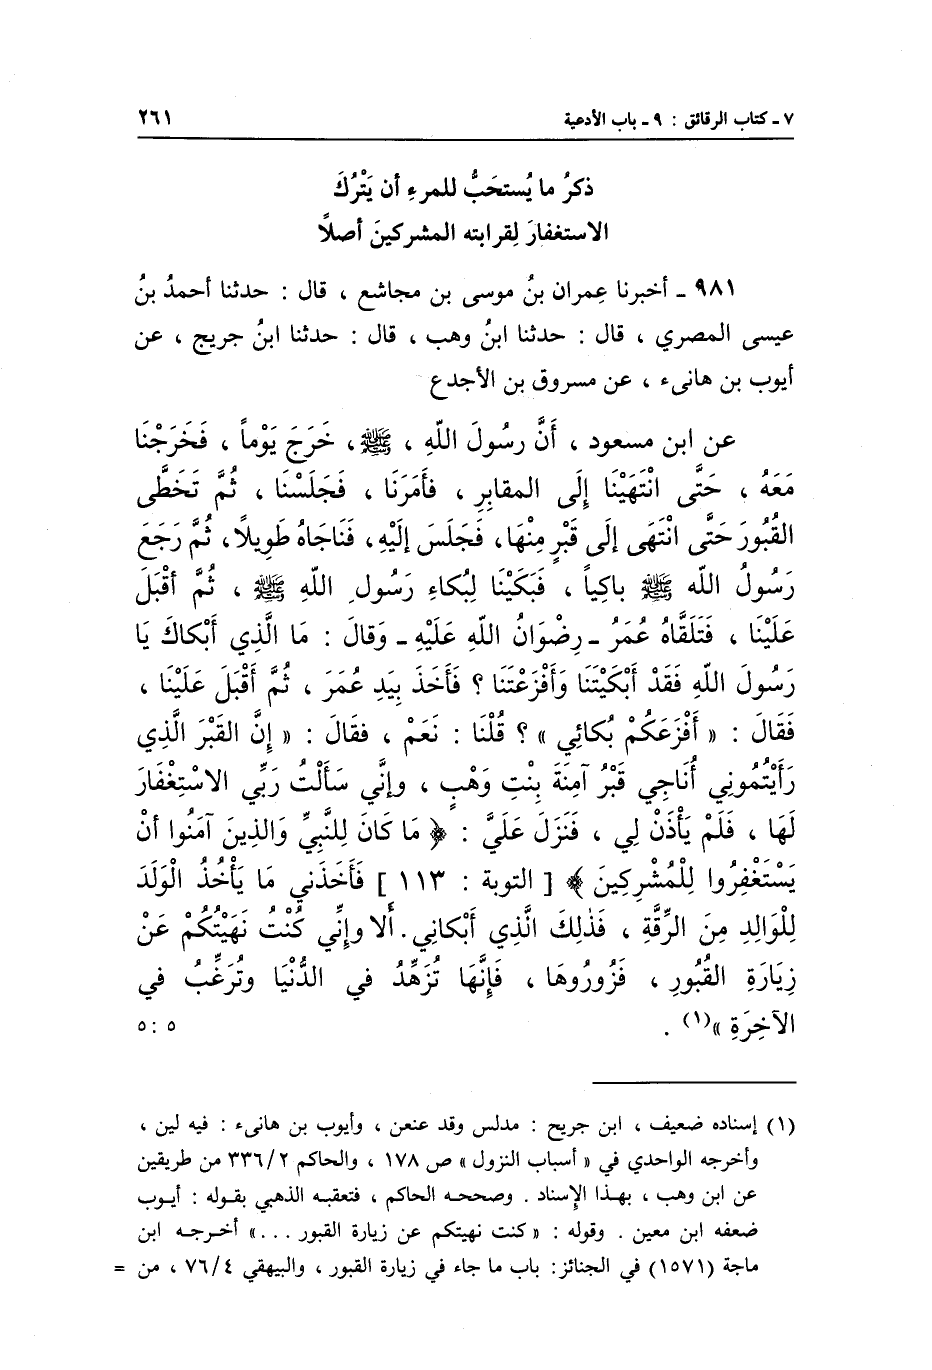 ٧ ـ كتاب الرقائق : ٩ ـ باب الأدعية ٢٦١
ذكرُ ما يُستحَبُّ للمرءِ أن يَتْرُكَ
الاستغفارَ لِقرابته المشركينَ أصلاً
٩٨١ ـ أخبرنا عِمران بنُ موسى بن مجاشع ، قال : حدثنا أحمدُ بنُ
عيسى المصري ، قال : حدثنا ابنُ وهب ، قال : حدثنا ابنُ جريج ، عن
أيوب بن هانىء ، عن مسروق بن الأجدع
عن ابن مسعود ، أَنَّ رسُولَ اللّهِ ، ﷺ ، خَرَجَ يَوْماً ، فَخَرَجْنَا
مَعَهُ ، حَتَّى انْتَهَيْنَا إِلَى المقابِرِ ، فأَمَرَنَا ، فَجَلَسْنَا ، ثُمَّ تَخَطَّى
القُبُورَ حَتَّى انْتَهَى إلَى قَبْرٍ مِنْهَا، فَجَلَسَ إلَيْهِ، فَنَاجَاهُ طَوِيلاً، ثُمَّ رَجَعَ
رَسُولُ الله ﷺ باكِياً ، فَبَكَيْنَا لِبُكاءِ رَسُولِ اللّهِ ﷺ ، ثُمَّ أقْبَلَ
عَلَيْنَا ، فَتَلَقَّاهُ عُمَرُ ـ رِضْوَانُ اللّهِ عَلَيْهِ ـ وَقالَ : مَا الَّذِي أَبْكاكَ يَا
رَسُولَ اللّهِ فَقَدْ أَبْكَيْتَنَا وَأَفْزَعْتَنَا ؟ فَأَخَذَ بِيَدِ عُمَرَ ، ثُمَّ أَقْبَلَ عَلَيْنَا ،
فَقَالَ : « أَفْزَعَكُمْ بُكائِي » ؟ قُلْنَا : نَعَمْ ، فقَالَ : « إِنَّ القَبْرَ الَّذِي
رَأَيْتُمُونِي أُنَاجِي قَبْرُ آمِنَةَ بِنْتِ وَهْبٍ ، وإنَّي سَأَلْتُ رَبِّي الاسْتِغْفَارَ
لَهَا ، فَلَمْ يَأْذَنْ لِي ، فَنَزَلَ عَلَيَّ : ﴿ مَا كَانَ لِلنَّبِيِّ وَالذِينَ آمَنُوا أنْ
يَسْتَغْفِرُوا لِلْمُشْرِكِينَ ﴾ [ التوبة : ١١٣ ] فَأَخَذَنِي مَا يَأْخُذُ الْوَلَدَ
لِلْوَالِدِ مِنَ الرِّقَّةِ ، فَذٰلِكَ الَّذِي أَبْكانِي. أَلا وإنِّي كُنْتُ نَهَيْتُكُمْ عَنْ
زِيَارَةِ القُبُورِ ، فَزُورُوهَا ، فَإِنَّهَا تُزَهِّدُ في الدُّنْيَا وتُرَغِّبُ في
الآخِرَةِ »(١) . ٥ :٥
(١) إسناده ضعيف ، ابن جريج : مدلس وقد عنعن ، وأيوب بن هانىء : فيه لين ،
وأخرجه الواحدي في « أسباب النزول » ص ١٧٨ ، والحاكم ٣٣٦/٢ من طريقين
عن ابن وهب ، بهذا الإسناد . وصححه الحاكم ، فتعقبه الذهبي بقوله : أيوب
ضعفه ابن معين . وقوله : « كنت نهيتكم عن زيارة القبور ...» أخرجه ابن
ماجة (١٥٧١) في الجنائز: باب ما جاء في زيارة القبور ، والبيهقي ٧٦/٤ ، من =